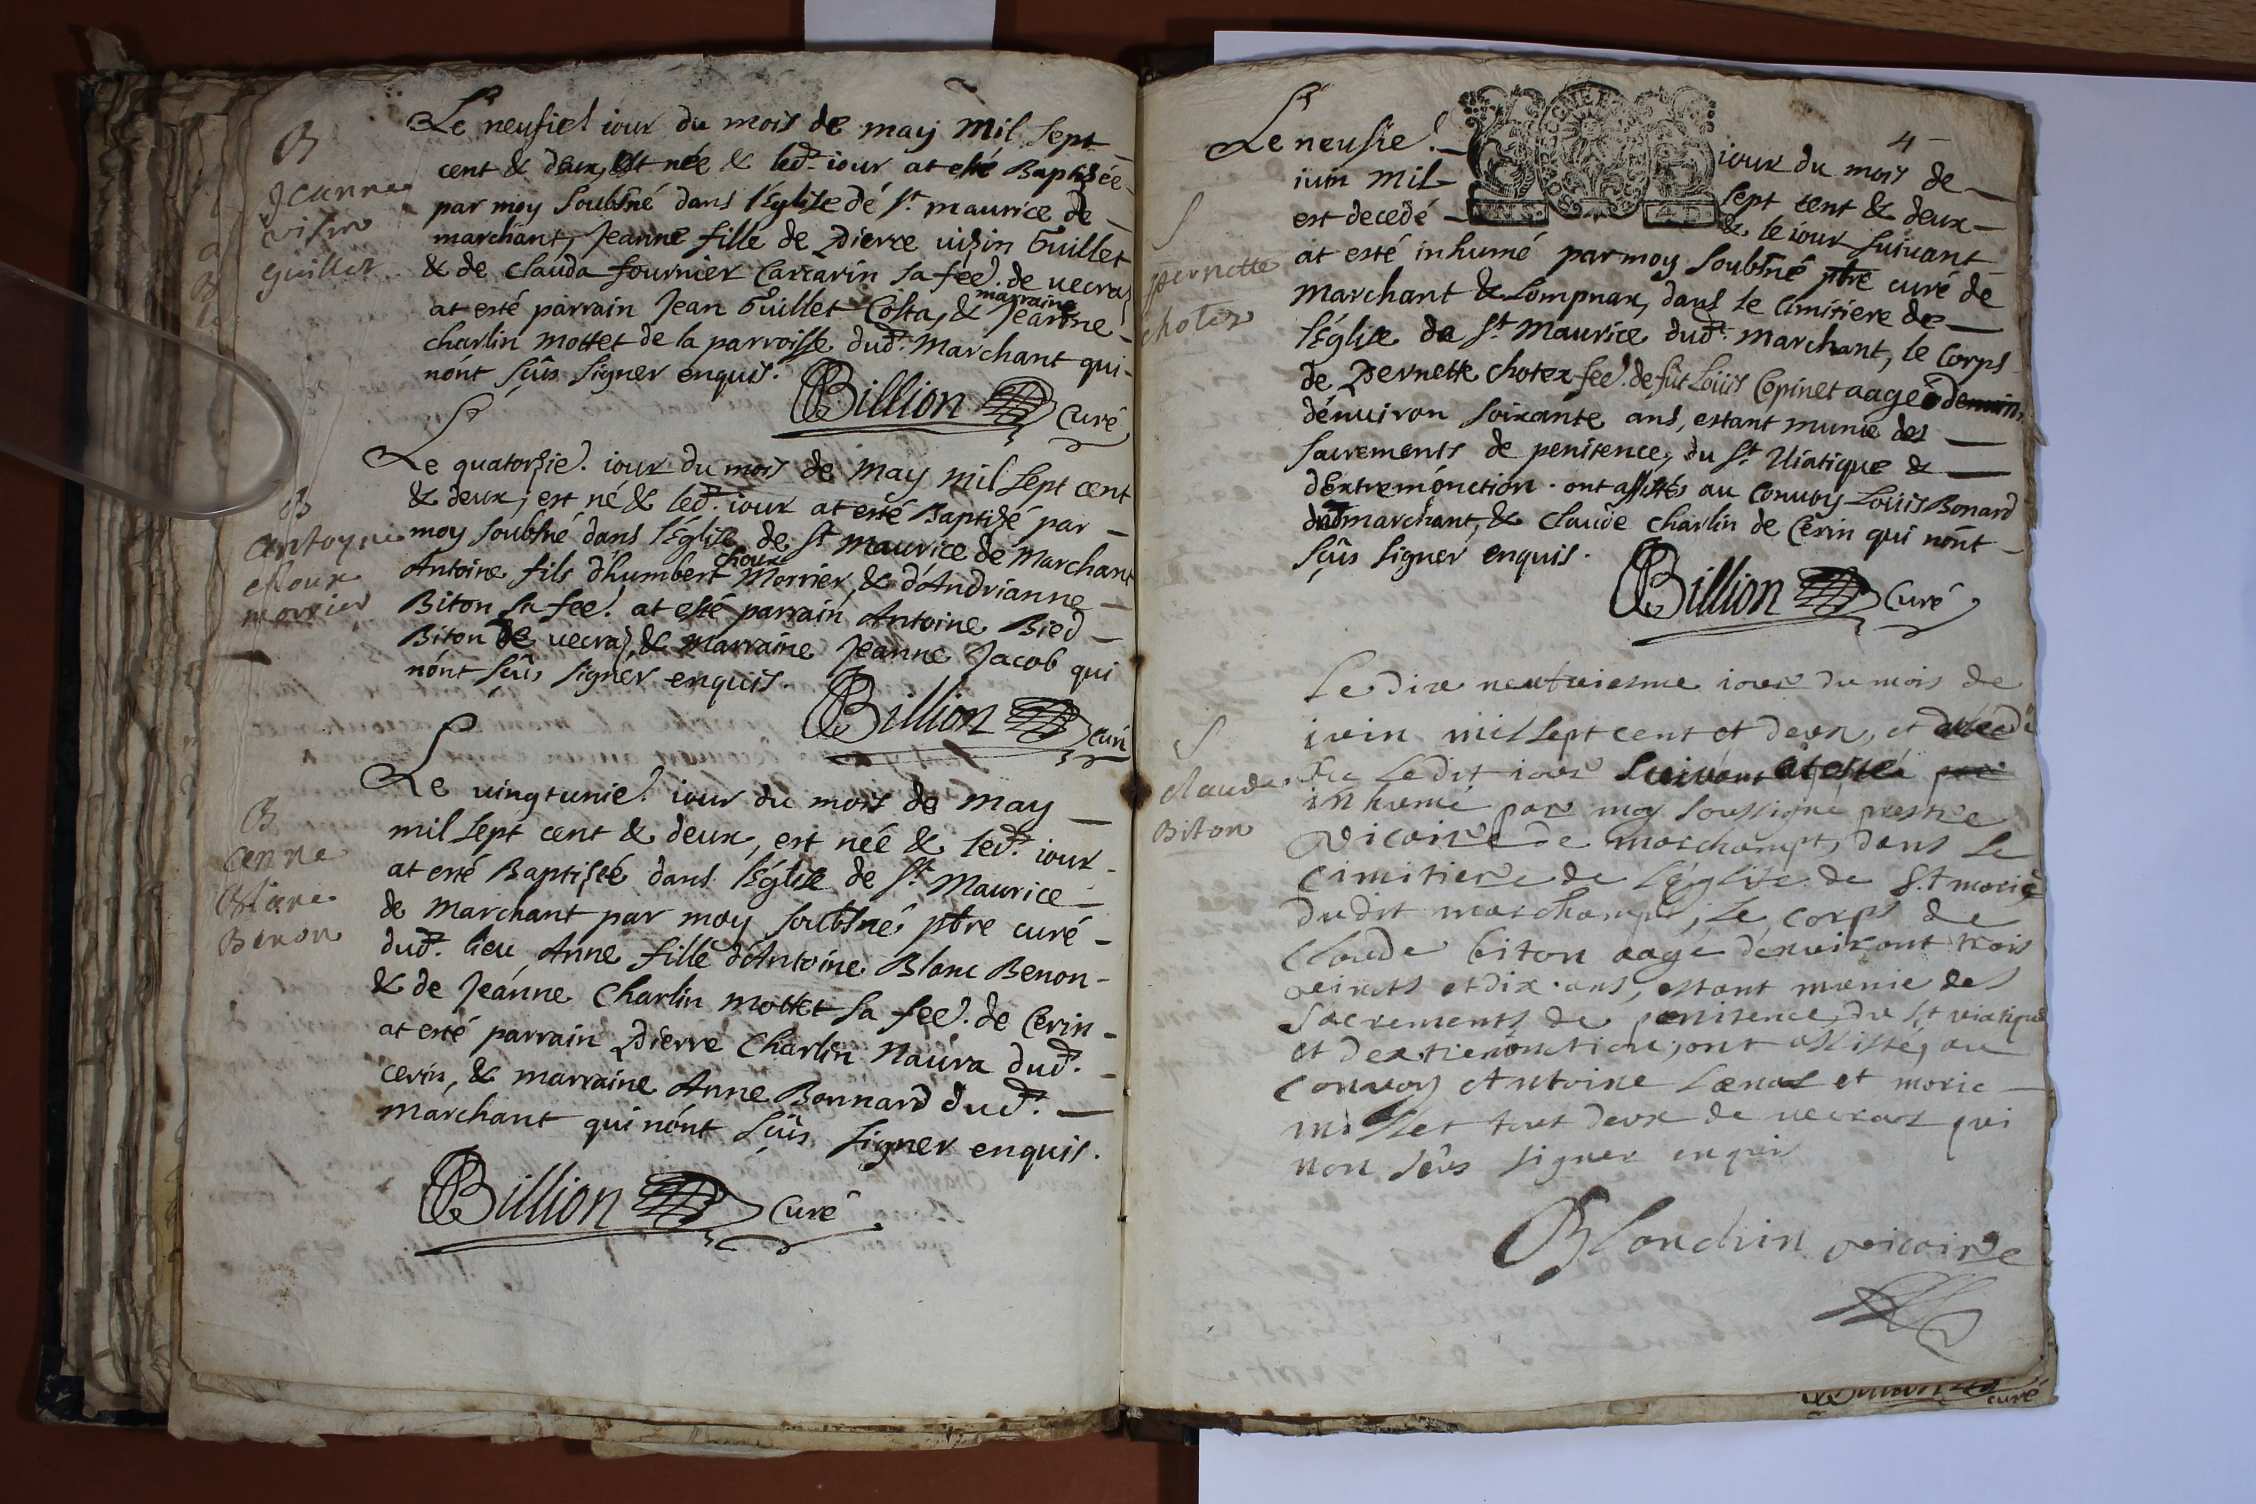 B
Jeanne
visin
guillet
Le neufie! iour du mois de may mil sept
cent & deux, est née & led.t iour at esté Baptisée
par moy soubsné dans l'Eglise dé S.t maurice de
marchant, Jeanne fille de Pierre visin Guillet
& de Clauda fournier Carrarin sa fee. de vecraz
at esté parrain Jean Guillet Costaz, & marraine Jeanne
charlin mottet de la parroisse dud.t Marchant qui
nónt sçûs signer enquis.
Billion Curé
B
antoyne
choux
morrier
Le quatorzie. iour du mois de may mil sept cent
& deux, est né & led.t iour at esté Baptizé par
moy soubsné dans l'Eglise de S.t Maurice de Marchant
Antoine fils d'humbert choux Morrier, & d'Andrianne
Biton sa fee. at esté parrain Antoine Bied
Biton de vecraz, & marraine Jeanne Jacob qui
nónt sçûs signer enquis.
Billion Curé
B
anne
Blanc
Benon
Le vingtunie! iour du mois de may
mil sept cent & deux, est née & led.t iour
at esté Baptisée dans l'Eglise de S.t Maurice
de Marchant par moy soubsné ptre curé
dud.t lieu Anne fille d'Antoine Blanc Benon
& de Jeánne Charlin mottet sa fee. de Cerin
at esté parrain Pierre Charlin Naura dud.t
cerin, & marraine Anne Bonnard dud.t
marchant qui nónt sçûs signer enquis.
Billion Curé
4
S
pernette
chotex
Le neufie! iour du mois de
iuin mil sept cent & deux
est decedé & le iour suivant
at esté inhumé par moy soubsné ptre curé de
Marchant & Lompnax, dans le Cimitiere de
l'Eglise de S.t Maurice dud.t Marchant, le Corps
de Pernette chotex fee. de fût Loüis Copinet aageé
dénuiron soixante ans, estant munie des
sacrements de penitence, du S.t Uiatique &
d'Extremónction. ont assistés au Convoy Loüis Bonard
dud.t marchant, & Claude Charlin de Cerin qui nónt
sçûs signer enquis.
Billion Curé
S
claude
Biton
Le dix neufviesme iour du mois de
ivin mil sept cent et deux, et decede
Le dit iour suivant at esté
inhumé par moy soussigne prestre
vicaire de marchampt, dans le
Cimitiere de l'église de S.t morice
du dit marchampt, le corps de
Claude biton aagé denviront trois
veints et dix ans, estant munie des
sacrements de penitence du S.t viatique
et dextremonction, ont assisté, au
Convoy Antoine et moric
mollet tout deux de vecraz qui
non sçus signer enquis
Blondin vicaire
curé